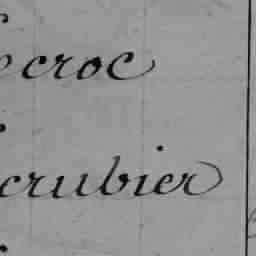 ecroc
crubier